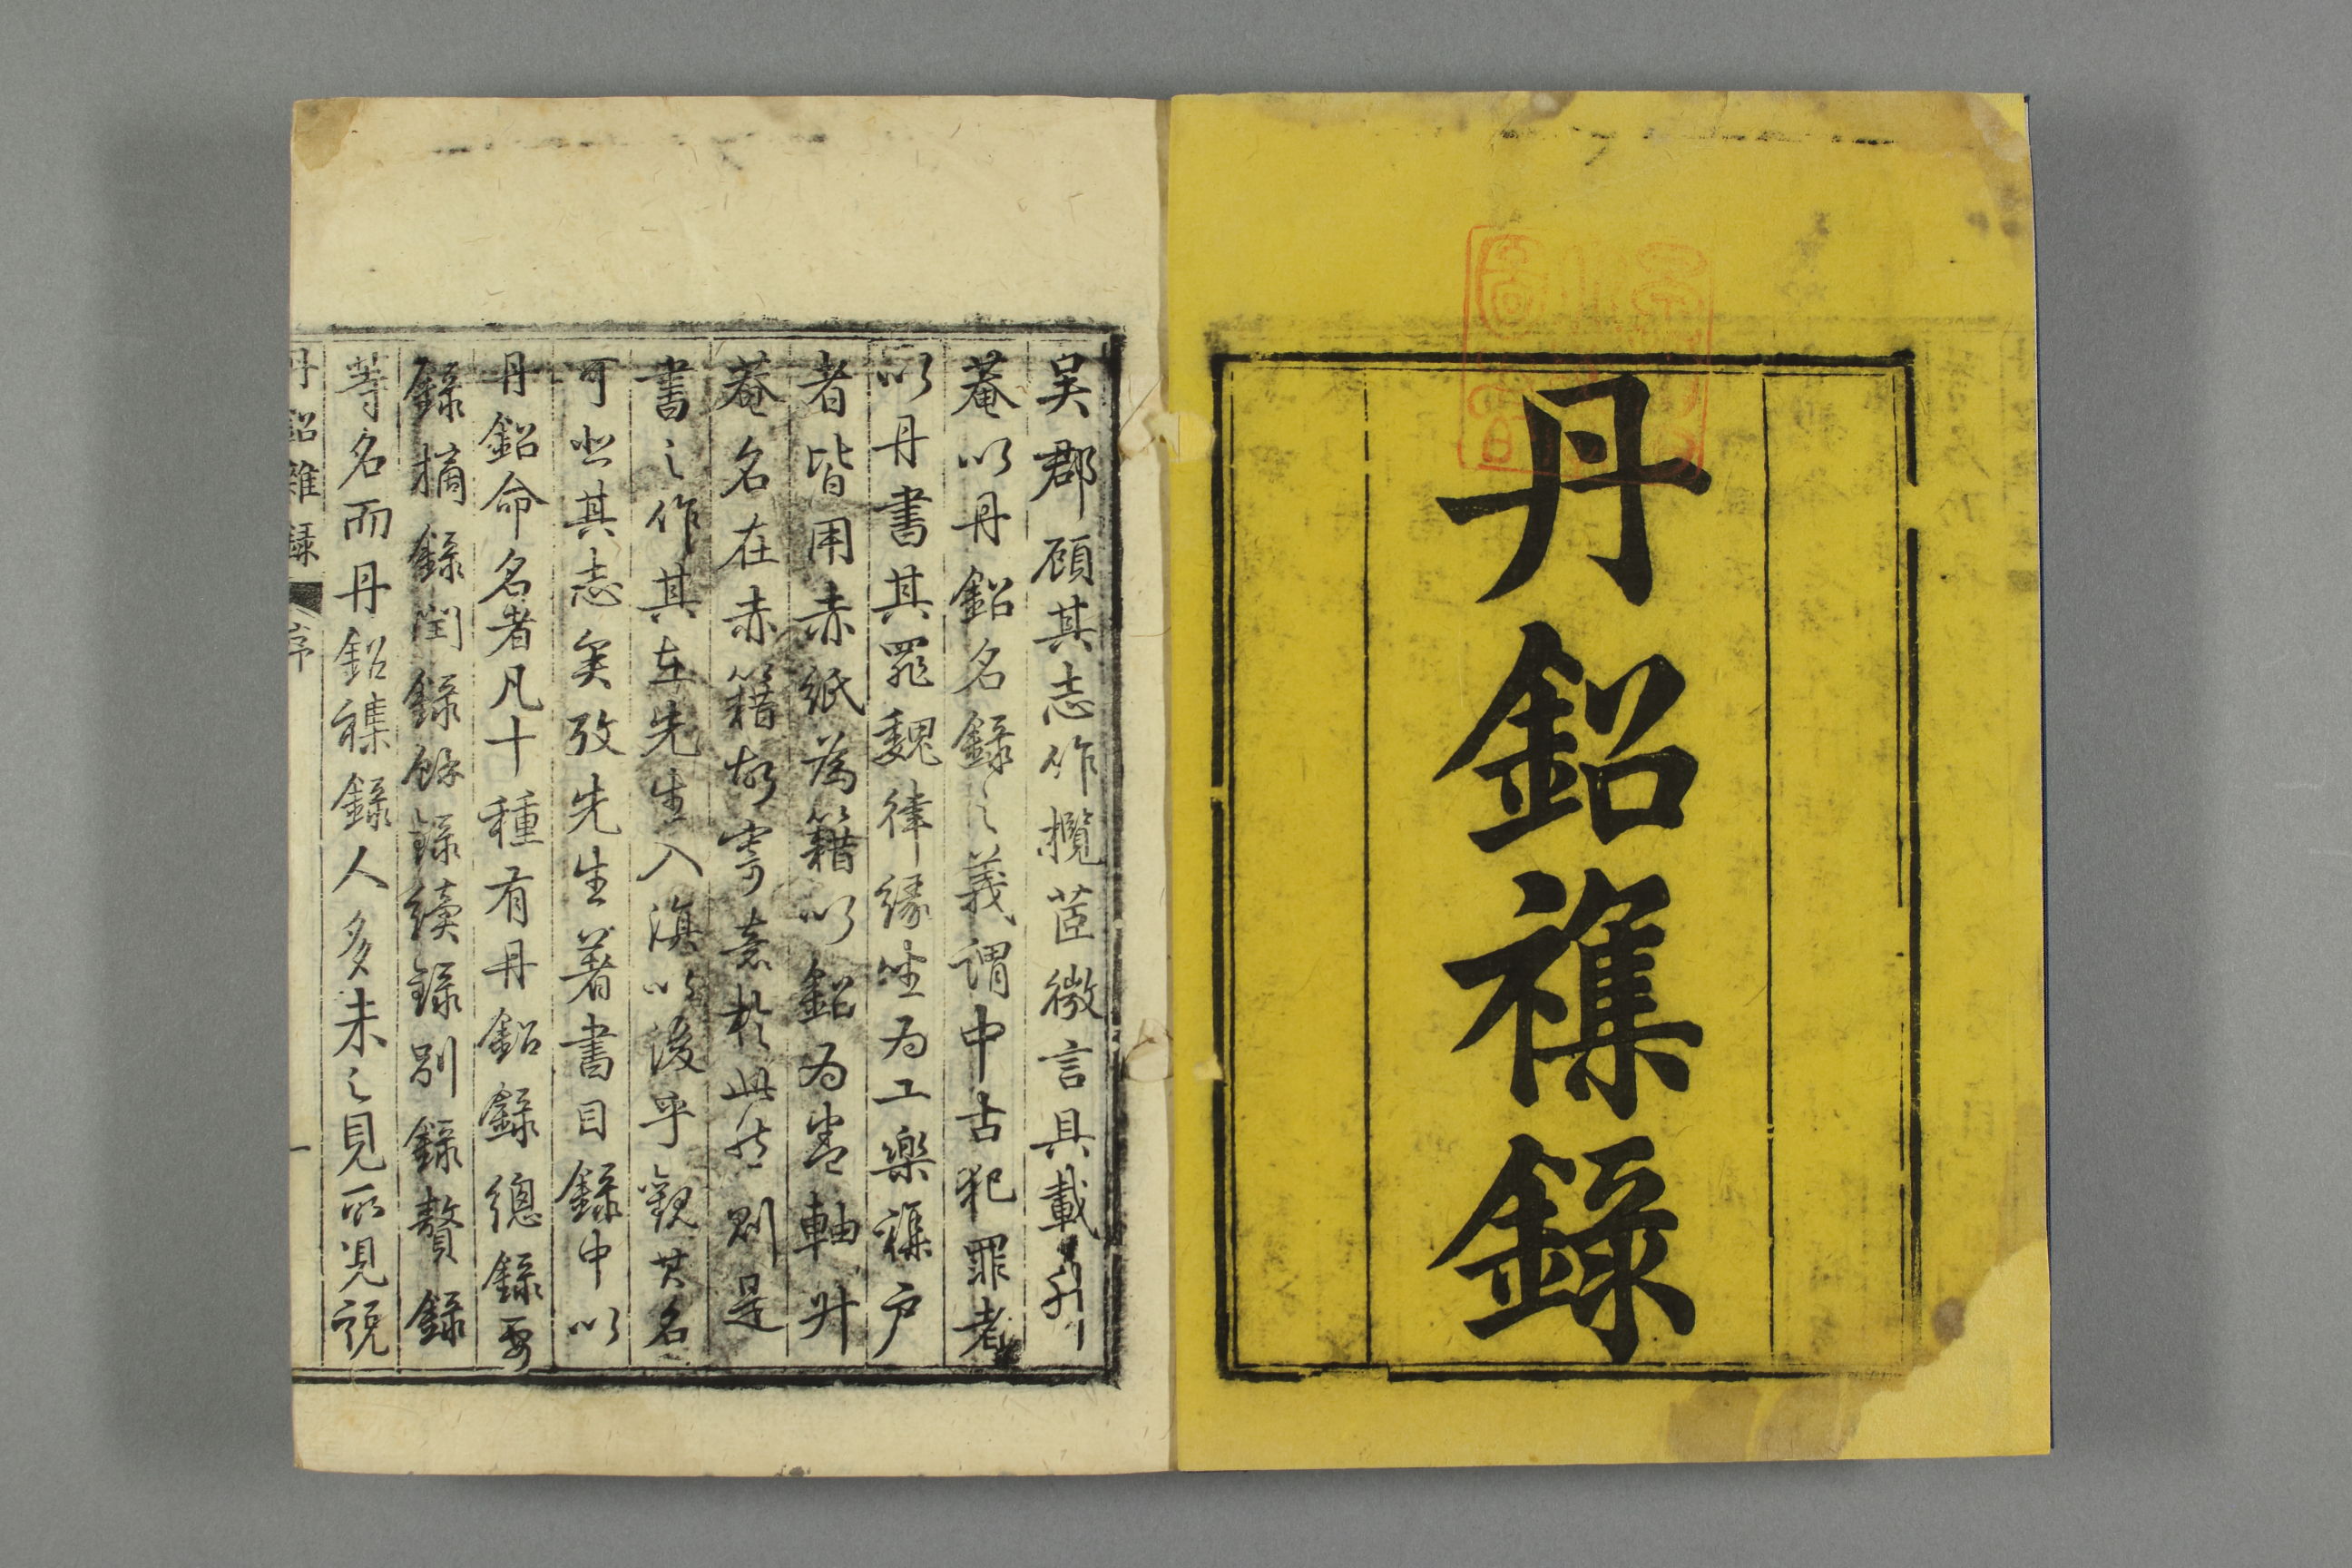 丹鉛襍錄
吴郡顧其志作攬茝微言具載升
菴以丹鉛名錄之義謂中古犯罪者
以丹書其罪魏律緣坐為工樂襍户
者皆用赤紙為籍以鉛為卷軸升
菴名在赤籍故寄意於此然則是
書之作其在先生入滇以後乎觀其名
可悲其志矣攷先生著書目錄中以
丹鉛命名者凡十種有丹鉛錄總錄要
錄摘錄閏錄餘錄續錄別錄贅錄
等名而丹鉛襍錄人多未之見所見說
丹鉛雜録 序 一